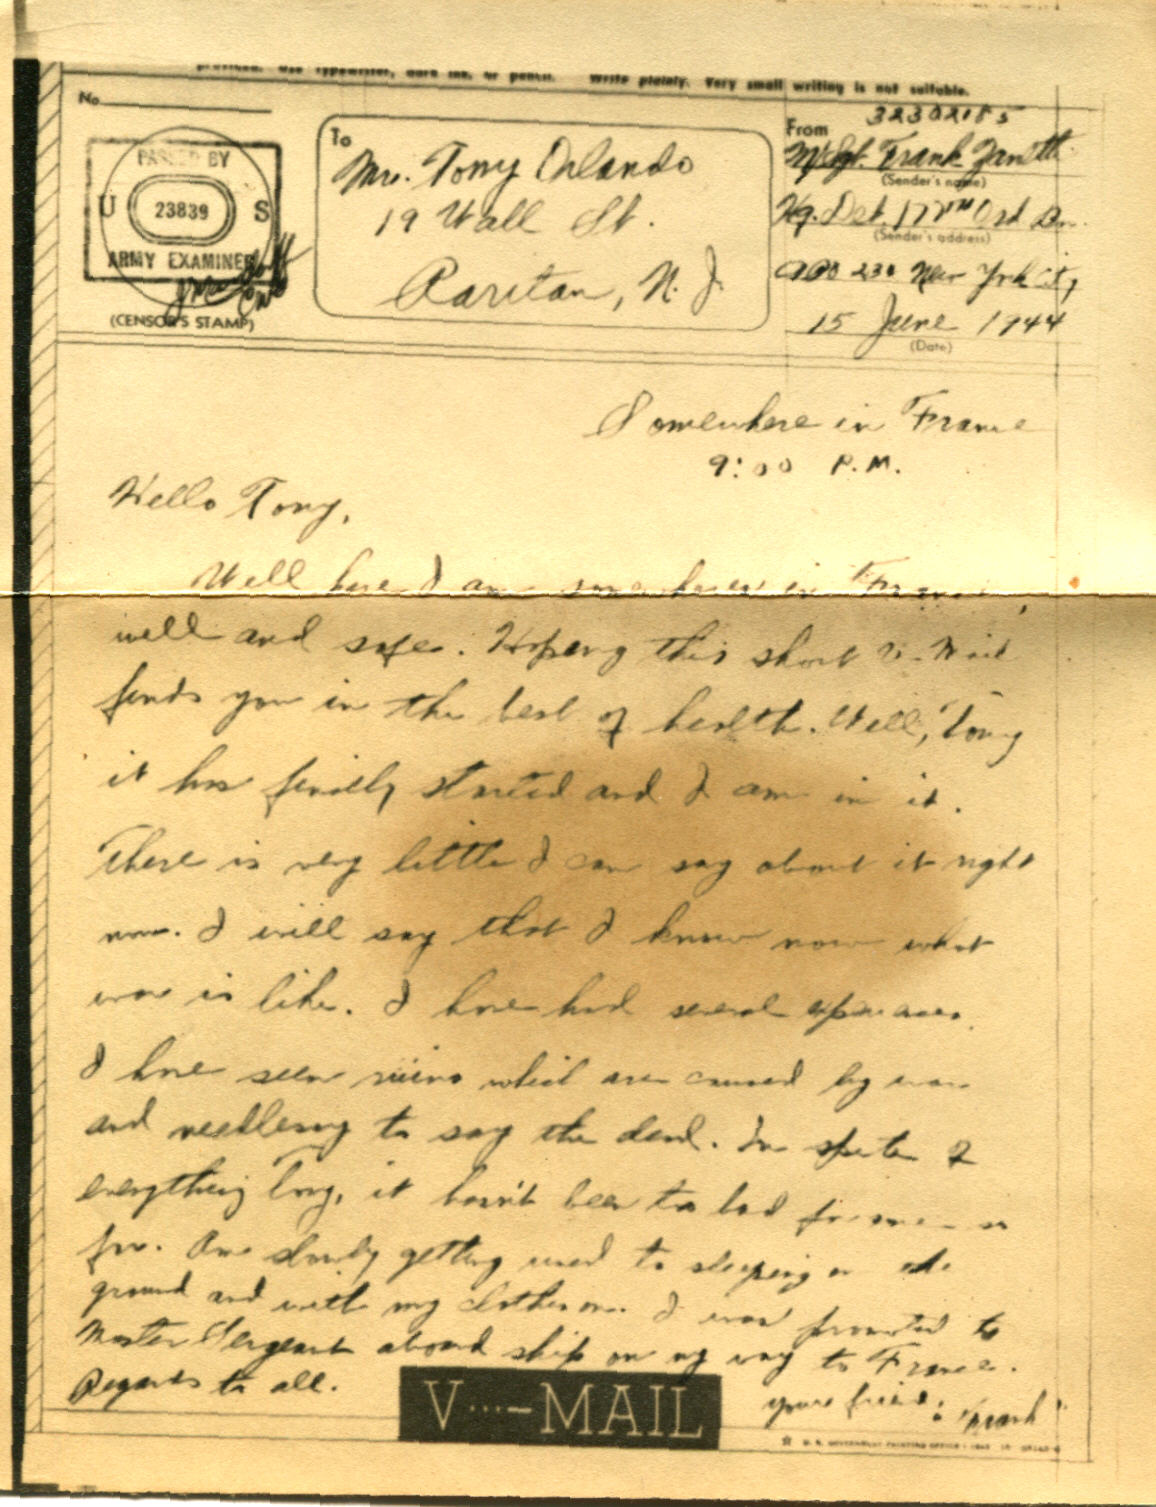 provided. Use typewriter, dark ink, or pencil. Write plainly. Very small writing is not suitable.
No.
PASSED BY
U 23839 S
ARMY EXAMINER
(CENSOR'S STAMP)
To
Mr. Tony Orlando
19 Wall St.
Raritan, N. J.
32302185
From
M/Sgt. Frank Zanetti
(Sender's name)
Hq. Det. 177th Ord Bn.
(Sender's address)
APO 230 New York City
15 June 1944
(Date)
Somewhere in France
9:00 P.M.
Hello Tony,
Well here I am somewhere in France,
well and safe. Hoping this short V-Mail
finds you in the best of health. Well, Tony
it has finally started and I am in it.
There is very little I can say about it right
now. I will say that I know now what
war is like. I have had several
I have seen ruins which are caused by war
and needlessy to say the dead. In spite of
everything Tony, it hasn't been to bad for me so
far. Am slowly getting used to sleeping on the
ground and with my clothes on. I was promoted to
Master Sergeant aboard ship on my way to France.
Regards to all.
your friend,
Frank
V···—MAIL
U. S. GOVERNMENT PRINTING OFFICE : 1943